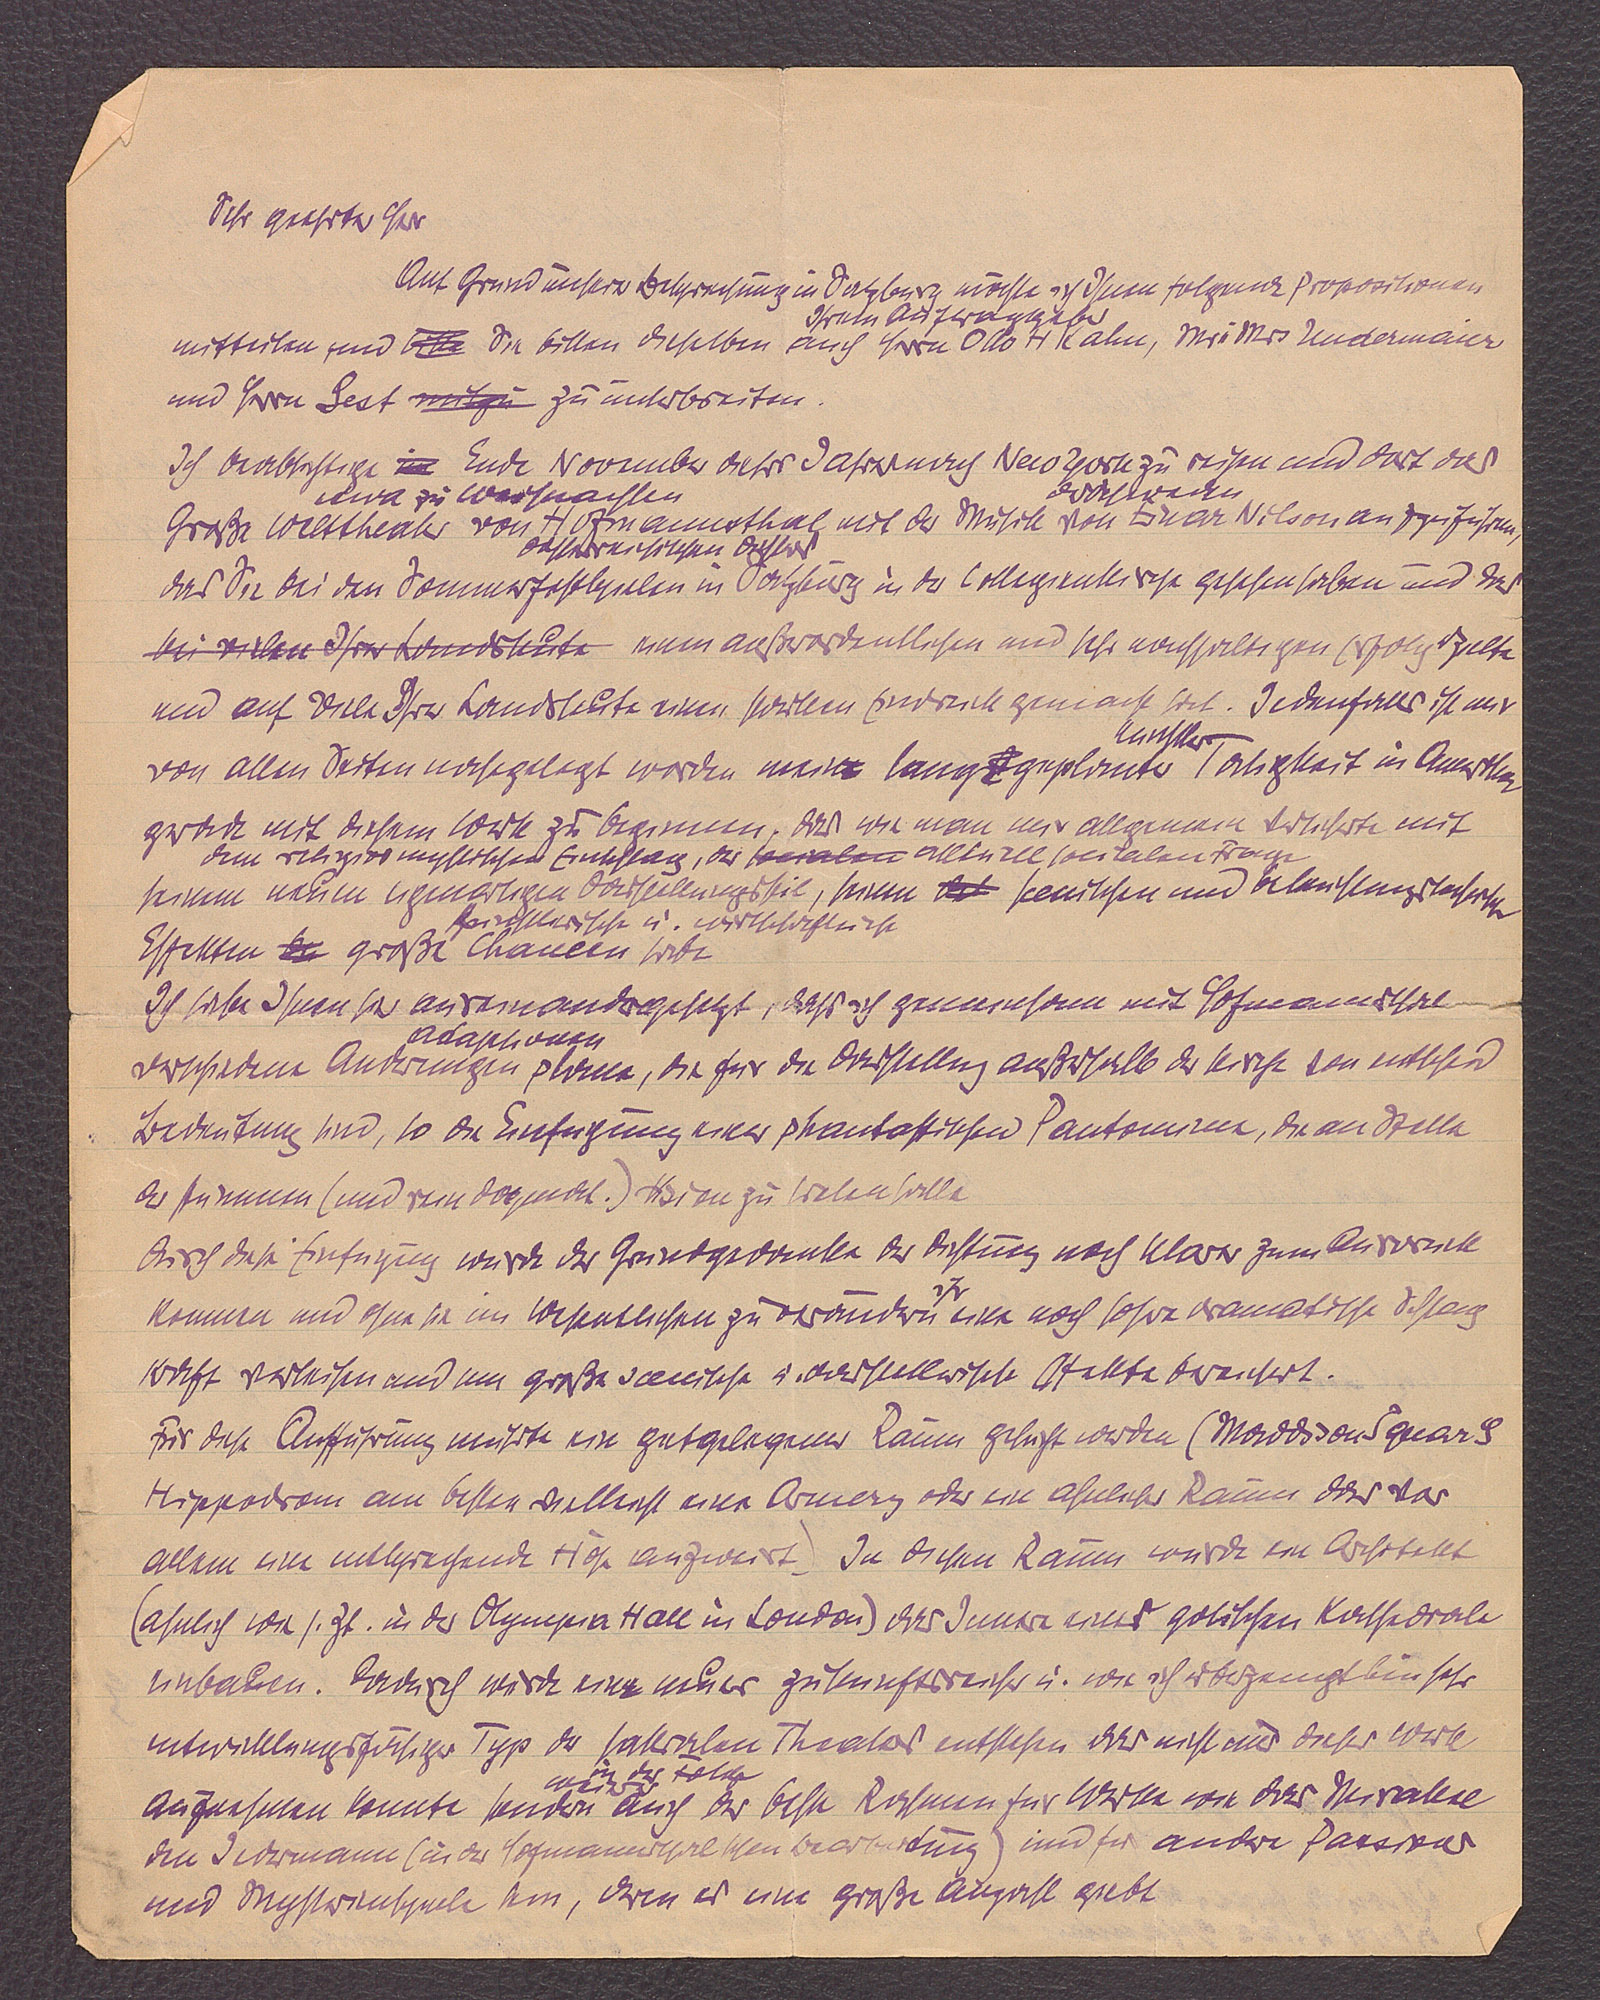 Sehr geehrter Herr
Auf Grund unserer Besprechung in Salzburg möchte ich Ihnen folgende Propositionen
Ihrem Auftraggeber
mitteilen und bitte Sie bitten dieselben auch Herrn Otto H Kahn, Mr u Mrs
und Herrn Gest zu unterbreiten.
Ich beabsichtige in Ende November dieses Jahres nach New York zu reisen und dort das
etwa zu Weihnachten
Große Welttheater von Hofmannsthal mit der Musik von Einar Nilson aufzuführen,
das Sie bei den Sommerfestspielen in Salzburg in der Collegienkirche gesehen haben und das
bei vielen Ihrer Landsleute einen außerordentlichen und sehr nachhaltigen Erfolg erzielte
und auf viele Ihrer Landsleute einen starken Eindruck gemacht hat. Jedenfalls ist mir
künstler
von allen Seiten nahegelegt worden meine lang geplante Tätigkeit in Amerika
gerade mit diesem Werk zu beginnen, das wie man mir allgemein versicherte mit
dem religiös mystischen Einschlag, der socialen aktuell socialen Frage
seinem neuen eigenartigen Darstellungsstil, seinen scenischen und beleuchtungstechnischen
künstlerische u. wirtschaftliche
Effekten große Chancen habe
Ich habe Ihnen ja auseinandergesetzt, dass ich gemeinsam mit Hofmannsthal
Adaptionen
verschiedene Änderungen plane, die für die Darstellung außerhalb der Kirche von entscheid
Bedeutung sind, so die Einfügung einer phantastischen Pantomime, die an Stelle
der stummen (und rein) Vision zu treten hätte
Durch diese Einfügung würde der Grundgedanke der Dichtung noch klarer zum Ausdruck
ihr
kommen und ohne sie im Wesentlichen zu verändern eine noch höhere dramatische Schlag
kraft verleihen und um große scenische u. darstellerische Effekte bereichert.
Für diese Aufführung müsste ein gutgelegener Raum gesucht werden (Maddison Square G
Hippodrom am besten vielleicht eine Armery oder ein ähnlicher Raum der vor
allem eine entsprechende Höhe aufweist) In diesen Raum würde ein Architekt
(ähnlich wie s. Zt. in der Olympia Hall in London) das Innere einer gotischen Kathedrale
einbauen. Dadurch würde ein neuer zukunftsreicher u. wie ich überzeugt bin sehr
entwicklungsfähiger Typ des sakralen Theaters entstehen der nicht nur dieses Werk
in der Folge
aufnehmen könnte sondern auch der beste Rahmen für Werke wie das Mirakel
den Jedermann (in der Hofmannsthal'schen Bearbeitung) und für andere Passions
und Mysterienspiele sein, deren es eine große Anzahl giebt